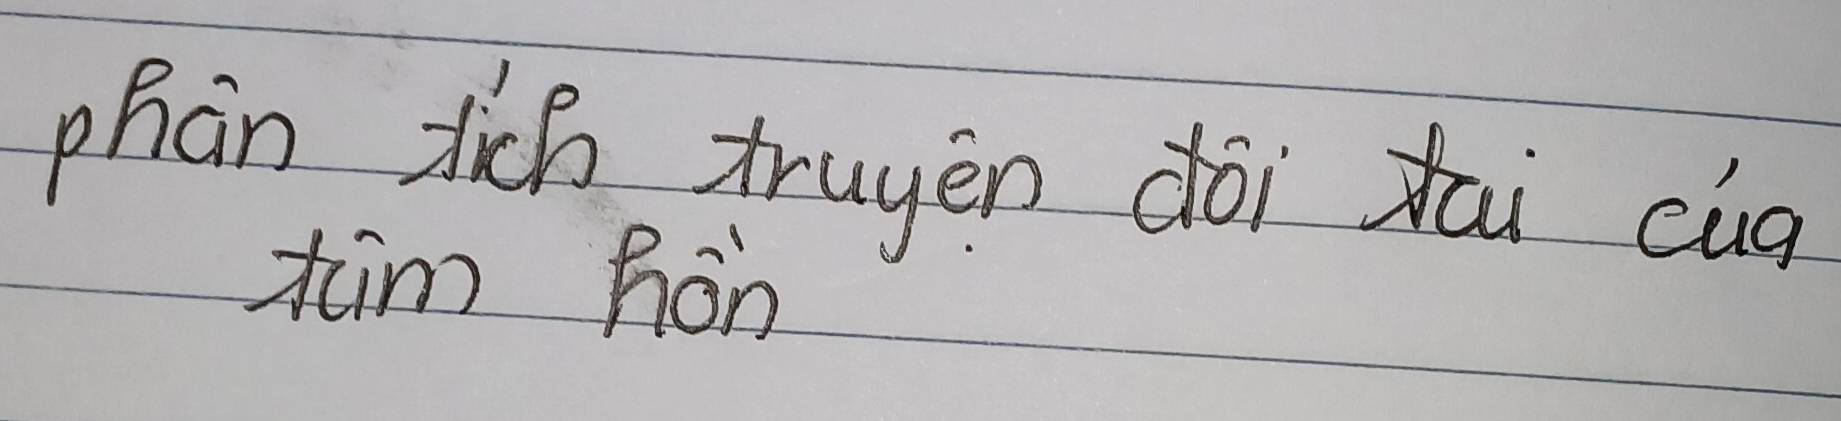 phân tích truyện đôi tai của
tâm hồn